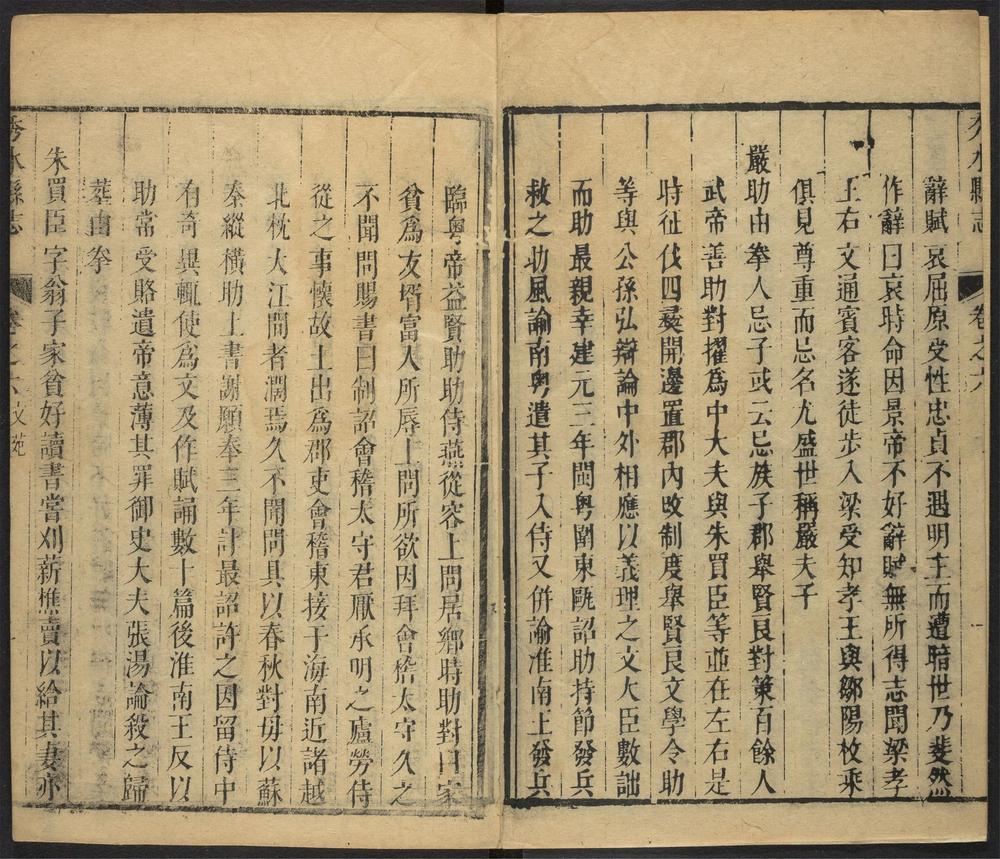 秀水縣志
卷之六
辭賦哀屈原受性忠貞不遇明主而遭暗世乃斐然
作辭曰哀時命因景帝不好辭賦無所得志聞梁孝
王右文通賓客遂徒步入梁受知孝王與鄒陽枚乘
俱見尊重而忌名尤盛世稱嚴夫子
嚴助由拳人忌子或云忌族子郡舉賢良對策百餘人
武帝善助對擢為中大夫與朱買臣等並在左右是
時征伐四夷開邊置郡內改制度舉賢良文學令助
等與公孫弘辯論中外相應以義理之文大臣數詘
而助最親幸建元三年閩粵圍東甌詔助持節發兵
救之助風諭南粵遣其子入侍又併諭淮南上發兵
臨粵帝益賢助助侍燕從容上問居鄉時助對曰家
貧為友壻富人所辱上問所欲因拜會稽太守久之
不聞問賜書曰制詔會稽太守君厭承明之廬勞侍
從之事懷故土出為郡吏會稽東接于海南近諸越
北枕大江間者濶焉久不聞問具以春秋對毋以蘇
秦縱橫助上書謝願奉三年計最詔許之因留侍中
有奇異輒使為文及作賦誦數十篇後淮南王反以
助常受賂遺帝意薄其罪御史大夫張湯論殺之歸
葬由拳
朱買臣字翁子家貧好讀書嘗刈薪樵賣以給其妻亦
秀水縣志
卷之六 文苑